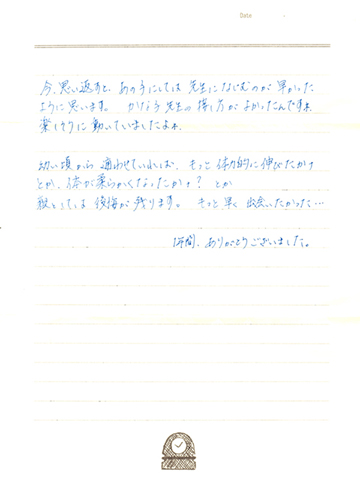 Date
今、思い返すと、あの子にしては先生になじむのが早かった
ように思います。かなう先生の接し方がよかったんですね。
楽しそうに動いていましたよね。
幼い頃から通わせていれば、もっと体力的に伸びたかナ
とか、体が柔らかくなったかナ？とか
親としては後悔が残ります。もっと早く出会いたかった…
1年間、ありがとうございました。